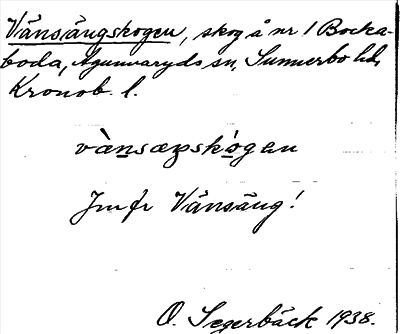 Vänsängskogen, skog å nr 1 Bocka-
boda, Agunnaryds sn, Sunnerbo hd,
Kronob. l.
vànsæŋskògen
Jmfr Vänsäng!
O. Segerbäck 1938.